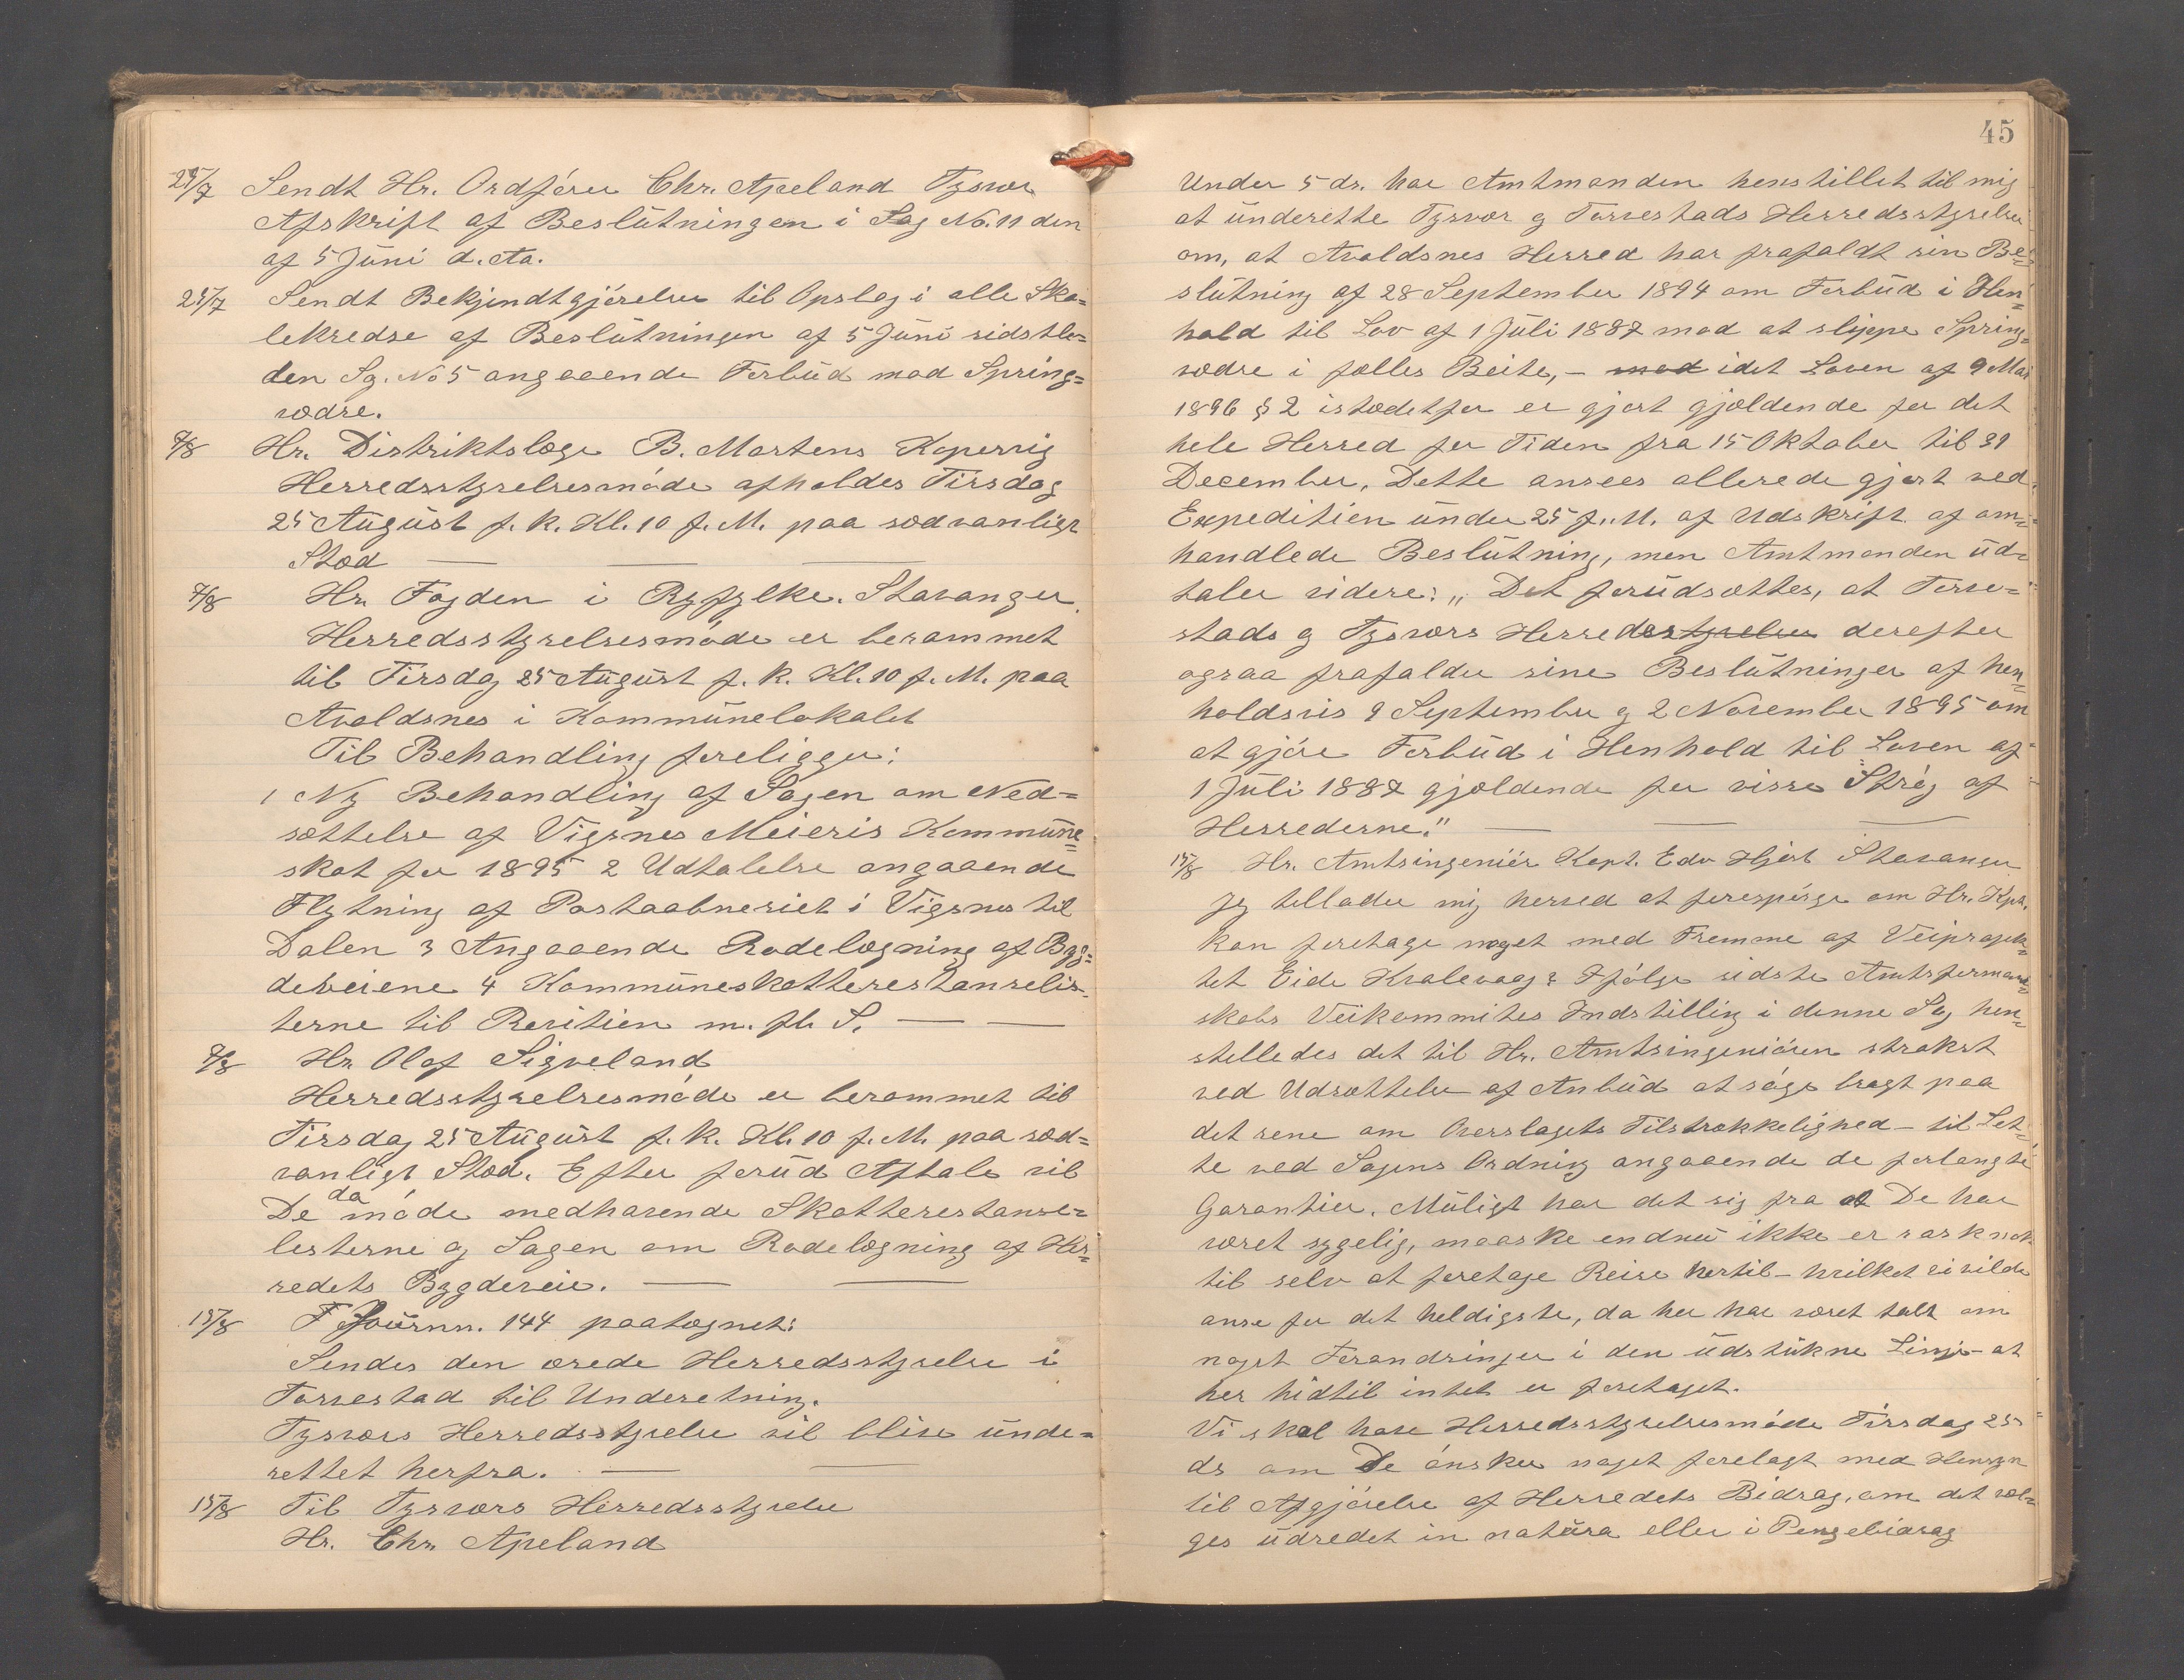 25/7 Sendt Hr. Ordfører Chr. Apeland Tysvær
Afskrift af Beslutningen i Sag No. 11 den
af 5 Juni d. Aa.
25/7 Sendt Bekjendtgjørelser til Opslag i alle Sko-
lekredse af Beslutningen af 5 Juni sidstle-
den Sg. No 5 angaaende Forbud mod Spring-
vædre.
7/8 Hr. Distriktslæge B. Martens Kopervig
Herredsstyrelsesmøde afholdes Tirsdag
25 August f. k. Kl. 10 f. M. paa sædvanligt
Sted
7/8 Hr. Fogden i Ryfylke. Stavanger.
Herredsstyrelsesmøde er berammet
til Tirsdag 25 August f. k. Kl. 10 f. M. paa
Avaldsnes i Kommunelokalet
Til Behandling foreligger:
1 Ny Behandling af Sagen om Ned-
sættelse af Vigsnes Meieris Kommune-
skat for 1895 2 Udtalelse angaaende
Flytning af Postaabneriet i Vigsnes til
Dalen 3 Angaaende Rodelægning af Byg-
deveiene 4 Kommuneskatterestanselis-
terne til Revision m. fl. S.
7/8 Hr. Olaf Sigveland
Herredsstyrelsesmøde er berammet til
Tirsdag 25 August f. k. Kl. 10 f. M. paa sæd-
vanligt Sted. Efter forud Aftale vil
De da møde medhavende Skatterestanse-
listerne og Sagen om Rodelægning af Her-
redets Bygdeveie.
15/8 F Journn. 144 paategnet:
Sendes den ærede Herredsstyrelse i
Torvestad til Underetning.
Tysværs Herredsstyrelse vil blive unde-
rettet herfra.
15/8 Til Tysværs Herredsstyrelse
Hr. Chr. Apeland
45
Under 5 ds. har Amtmanden henstillet til mig
at underette Tysvær og Torvestads Herredsstyrelser
om, at Avaldsnes Herred har frafaldt sin Be-
slutning af 28 September 1894 om Forbud i Hen-
hold til Lov af 1 Juli 1887 mod at slippe Spring-
vædre i fælles Beite, - mod idet Loven af 9 Mai
1896 § 2 istædetfor er gjort gjældende for det
hele Herred for Tiden fra 15 Oktober til 31
December. Dette ansees allerede gjort ved
Expeditien under 25 f. M. af Udskrift af om-
handlede Beslutning, men Amtmanden ud-
taler videre: „Det forudsættes, at Torve-
stads og Tysværs Herredsstyrelser derefter
ogsaa frafalder sine Beslutninger af hen-
holdsvis 9 September og 2 November 1895 om
at gjøre Forbud i Henhold til Loven af
1 Juli 1887 gjældende for visse Strøg af
Herrederne."
15/8 Hr. Amtsingeniør Kapt. Edv Hjort Stavanger
Jeg tillader mig herved at forespørge om Hr. Kpt.
kan foretage noget med Fremme af Veiprojek-
tet Eide Kvalevaag? Ifølge sidste Amtsformand-
skabs Veikommites Indstilling i denne Sag hen-
stilledes det til Hr. Amtsingeniøren strakst
ved Udsættelse af Anbud at søge bragt paa
det rene om Overslagets Tilstrækkelighed - til Let-
te ved Sagens Ordning angaaende de forlangte
Garantier. Muligt har det sig fra at De har
været sygelig, maaske endnu ikke er rask nok
til selv at foretage Reise hertil - hvilket vi vilde
anse for det heldigste, da her har været talt om
noget Forandringer i den udstukne Linje - at
her hidtil intet er foretaget.
Vi skal have Herredsstyrelsesmøde Tirsdag 25
ds om De ønsker noget forelagt med Hensyn
til Afgjørelse af Herredets Bidrag, om det væl-
ges udredet in natura eller i Pengebidrag